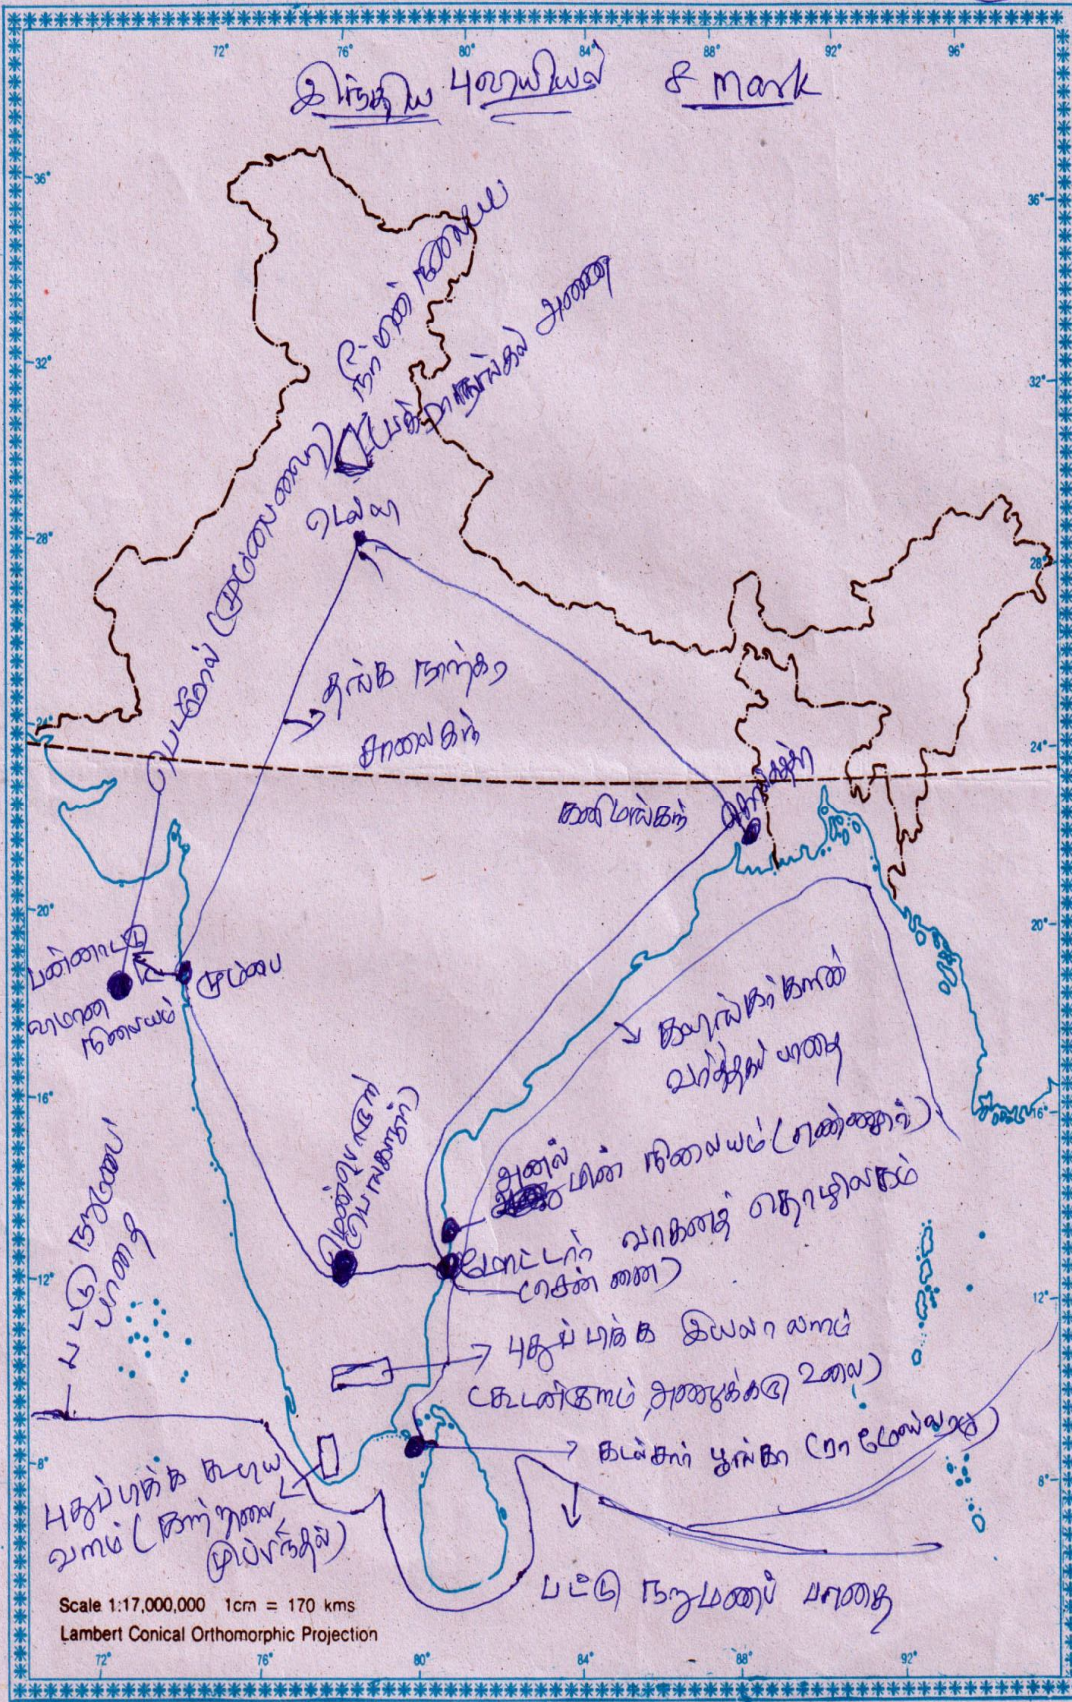 72° 76° 80° 84° 88° 92° 96°
இந்திய புவியியல் 8 mark
36° 36°
32° 32°
28° 28°
24° 24°
20° 20°
16° 16°
12° 12°
8° 8°
நீர் மின் நிலைய
அணை
டெல்லி
பெட்ரோல் (மும்பைஹை)
தங்க நாற்கர
சாலைகள்
கனிமங்கள்
பன்னாட்டு
விமான
நிலையம்
மும்பை
வர்த்தகப் பாதை
மென்பொருள்
(பெங்களூர்)
அனல்
மின் நிலையம் (எண்ணூர்)
மோட்டார் வாகனத் தொழிலகம்
(சென்னை)
பட்டு நறுமணப்
பாதை
புதுப்பிக்க இயலா வளம்
(கூடன்குளம் அணுக்கரு உலை)
கடல்சார் பூங்கா (ராமேஸ்வரம்)
புதுப்பிக்க கூடிய
வளம் (காற்றாலை
முப்பந்தல்)
பட்டு நறுமணப் பாதை
Scale 1:17,000,000 1cm = 170 kms
Lambert Conical Orthomorphic Projection
72° 76° 80° 84° 88° 92°